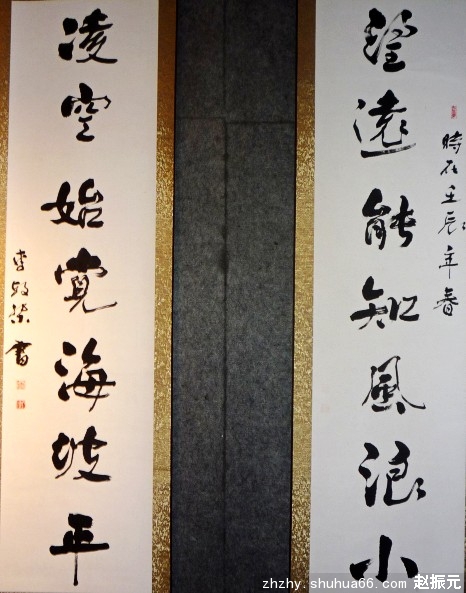 時在壬辰年春
望遠能知風浪小
凌空始覺海波平
李 書
zhzhy.shuhua66.com 赵振元